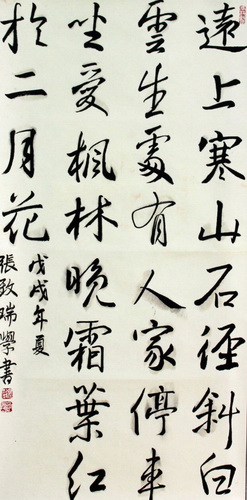 遠上寒山石徑斜白
雲生處有人家停車
坐愛楓林晚霜葉紅
於二月花
戊戌年夏
張致瑞學書